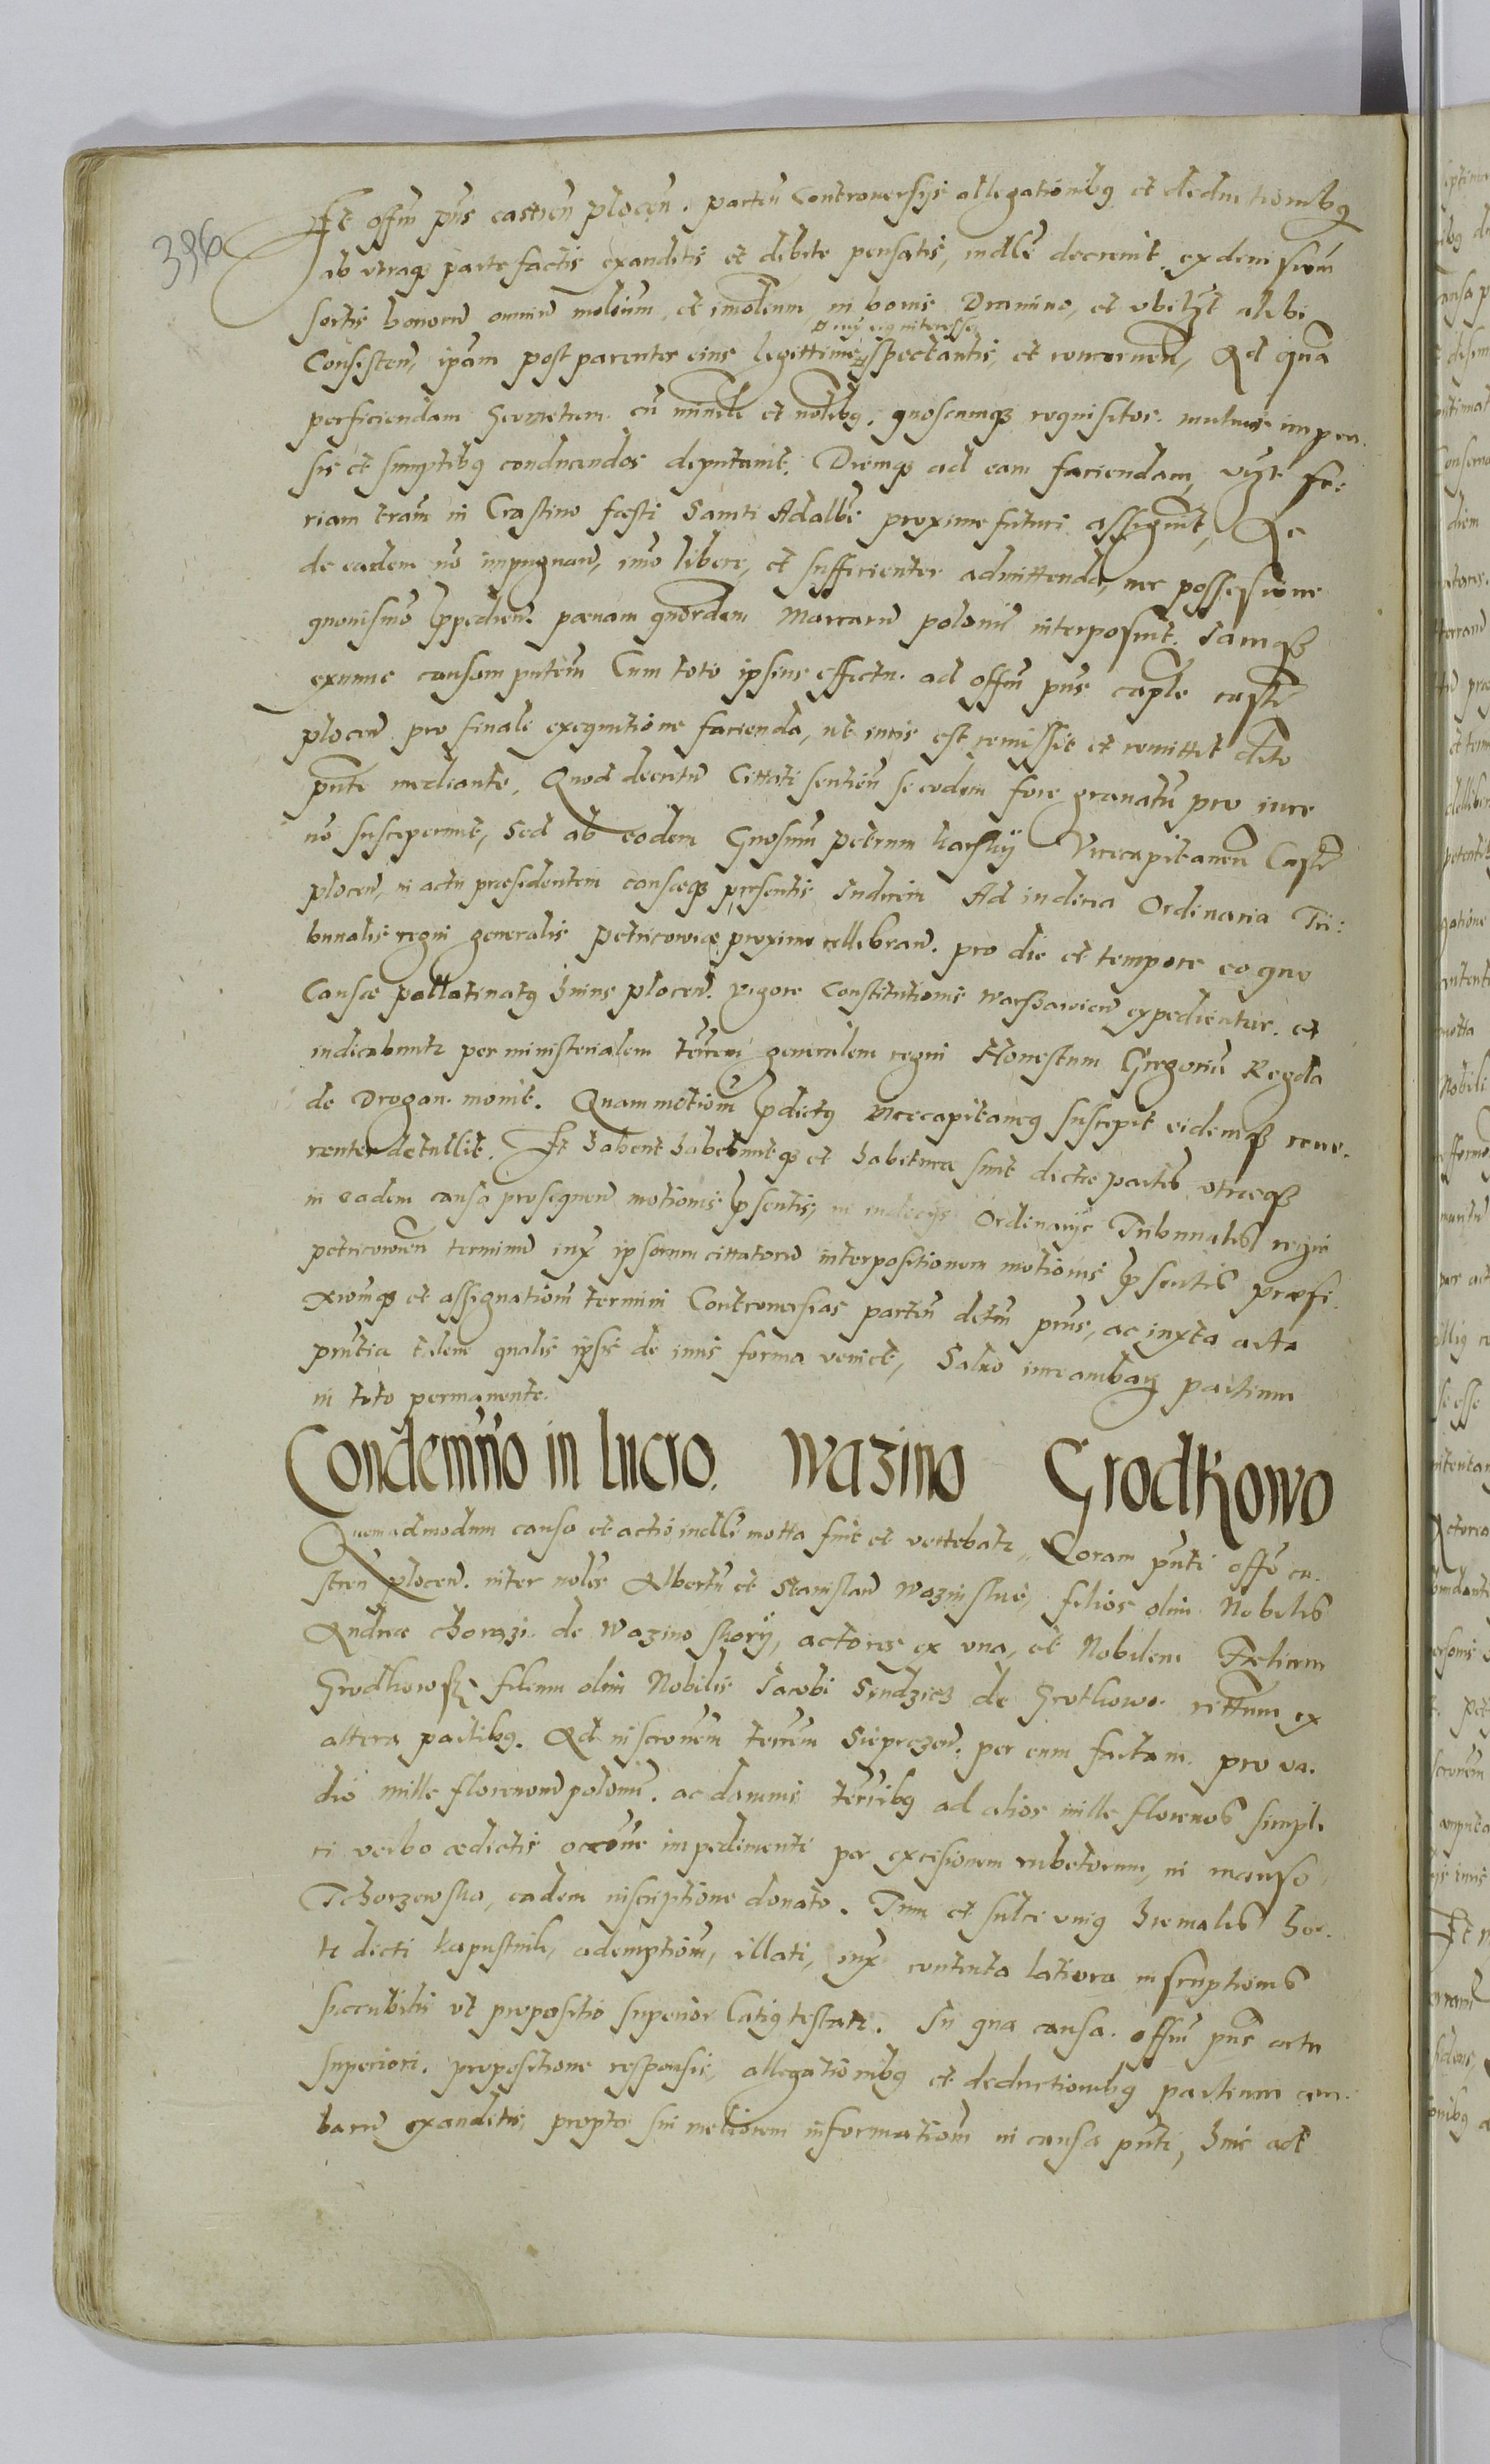 396
Et offm pns castren plocen. partiu Controversijs allegationibq et deductionibq
ab utraq3 parte factis exauditis et debite pensatis, indlr decrevit exdivisiom
sortis bonoru omniu mobiliu, et imobiliu, in bonis Dranino, et ubilzt alibi
Consisten, ipam post parentes eius legittime spectantis, et concernen, Ad qua
perficiendam Geometram cu minli et nobilibq. quoscumq3 requisitos. mutuis impen.
sis et sumptibq conducendos deputavit. Diemq3 ad eam faciendam, vizt fe:
riam tram in Crastino festi Sancti Adalbi proxime futuri assignavit, Et
de eadem no impugnan, imo libere, et sufficienter admittenda, nec possessione
quovismo ppedien. pænam quordam Marcaru poloni interposuit. Iamq3
exnunc causam pntem Cum toto ipsius effectu. ad offm pns caple castr
plocen pro finali exequutione facienda, ut iuris est remissit et remittit dcto
pnti mediante. Quod decretu Cittati sentien se eodem fore gravatu pro iure
no susceperunt, Sed ab eodem Gnosum petrum karskij Vicecapitaneu Castr
plocen, in actu præsidentem causæq3 præsentis Iudicem Ad iudicia Ordinaria Tri:
bunalis regni generalis petricoviæ proxime cellebran. pro die et tempore eo quo
Causæ pallatinatq huius plocen. vigore Constitutionis warschavien expedientur. et
iudicabunt per ministerialem terrem generalem regni Honestum Gregoriu Regda
de Drogan. movit. Quam motiom pdictq vicecapitaneq suscepit eidemq3 reve.
renter detullit. Et habent habebuntq3 et habitura sunt dictæ partes utræq3
in eadem causa prosequen motionis psentis, in iudicijs Ordinarijs Tribunalis regni
petricovien terminu iux ipsorum cittatoru interpositionem motionis psentis præfi.
xiomq3 et assignatiom termini Controversias partiu detm prius, ac iuxta acta
pntia talem qualis ipsis de iuris forma veniet, Salvo iure ambarq partium
in toto permanente.
Condemno in lucro. Wazino Grodkowo
Quemadmodum causa et actio indlr motta fuit et vertebatr, Coram pnti offo ca.
stren plocen. inter nobles Albertu et Stanislau Wazinskie, filios olim Nobilis
Andreæ chorazi de Wazino skorij, actores ex una, et Nobilem Felicem
Grodkowsky filium olim Nobilis Iacobi Sendzicz de Grotkowo. rittum ex
altera partibq. Ad inscronem terrem Sieprczen. per eum factam. pro va.
dio mille florenoru polonu. ac damnis terribq ad alios mille florenos simpli
ci verbo ædictis occone impedimenti per excisionem rubetorum, in manso
Tchorzewsko, eadem inscriptione donato. Tum et sulci unius hiemalis hor.
ti dicti kapustnik, ademptiom, illati, iux contenta latiora inscriptionis
succubitis ut propositio superior latiq testatr. In qua causa. offm pns actu
superiori. propositione responsis, allegationibq et deductionibq partium am.
baru exauditis, propter sui meliorem informatiom in causa pnti, huic act